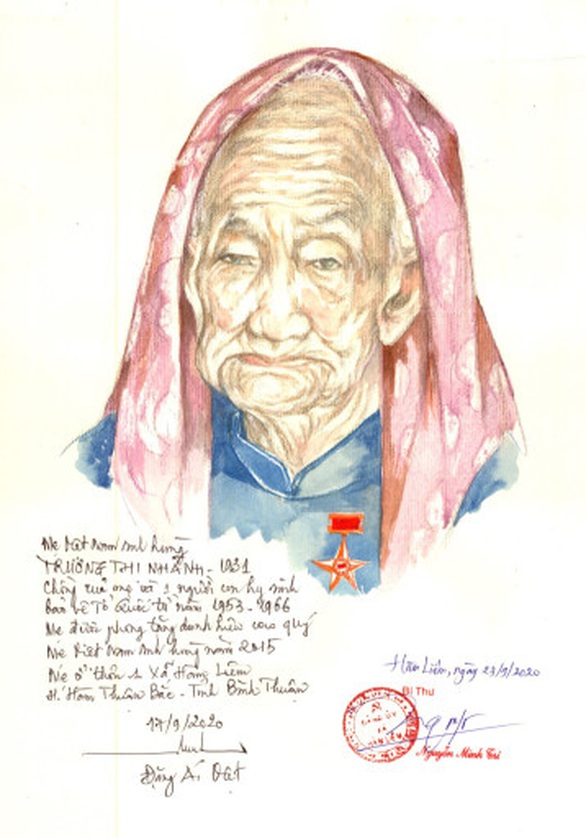 Mẹ Việt Nam anh hùng
TRƯƠNG THỊ NHÀNH - 1931
Chồng của mẹ và 1 người con hy sinh
bảo vệ Tổ Quốc từ năm 1953 - 1966
Mẹ được phong tặng danh hiệu cao quý
Mẹ Việt Nam anh hùng năm 2015
Mẹ ở thôn 1 Xã Hồng Liêm
H. Hàm Thuận Bắc - Tỉnh Bình Thuận
17/9/2020
Đặng Ái Việt
Hồng Liêm, ngày 23/9/2020
Bí Thư
Nguyễn Minh Trí